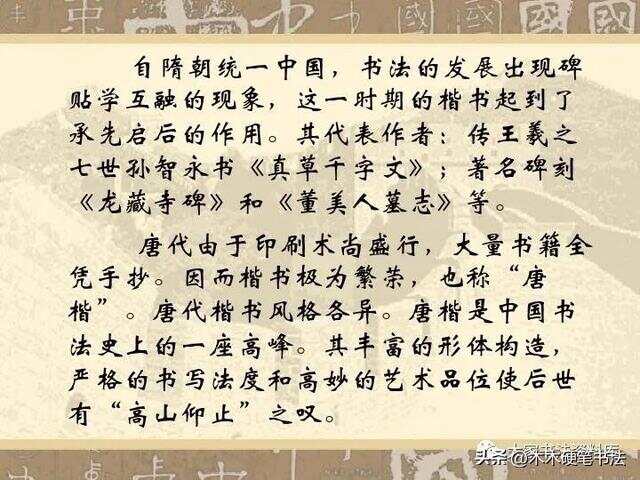 自隋朝统一中国，书法的发展出现碑
贴学互融的现象，这一时期的楷书起到了
承先启后的作用。其代表作者：传王羲之
七世孙智永书《真草千字文》；著名碑刻
《龙藏寺碑》和《董美人墓志》等。
唐代由于印刷术尚盛行，大量书籍全
凭手抄。因而楷书极为繁荣，也称“唐
楷”。唐代楷书风格各异。唐楷是中国书
法史上的一座高峰。其丰富的形体构造，
严格的书写法度和高妙的艺术品位使后世
有“高山仰止”之叹。
头条@木木硬笔书法